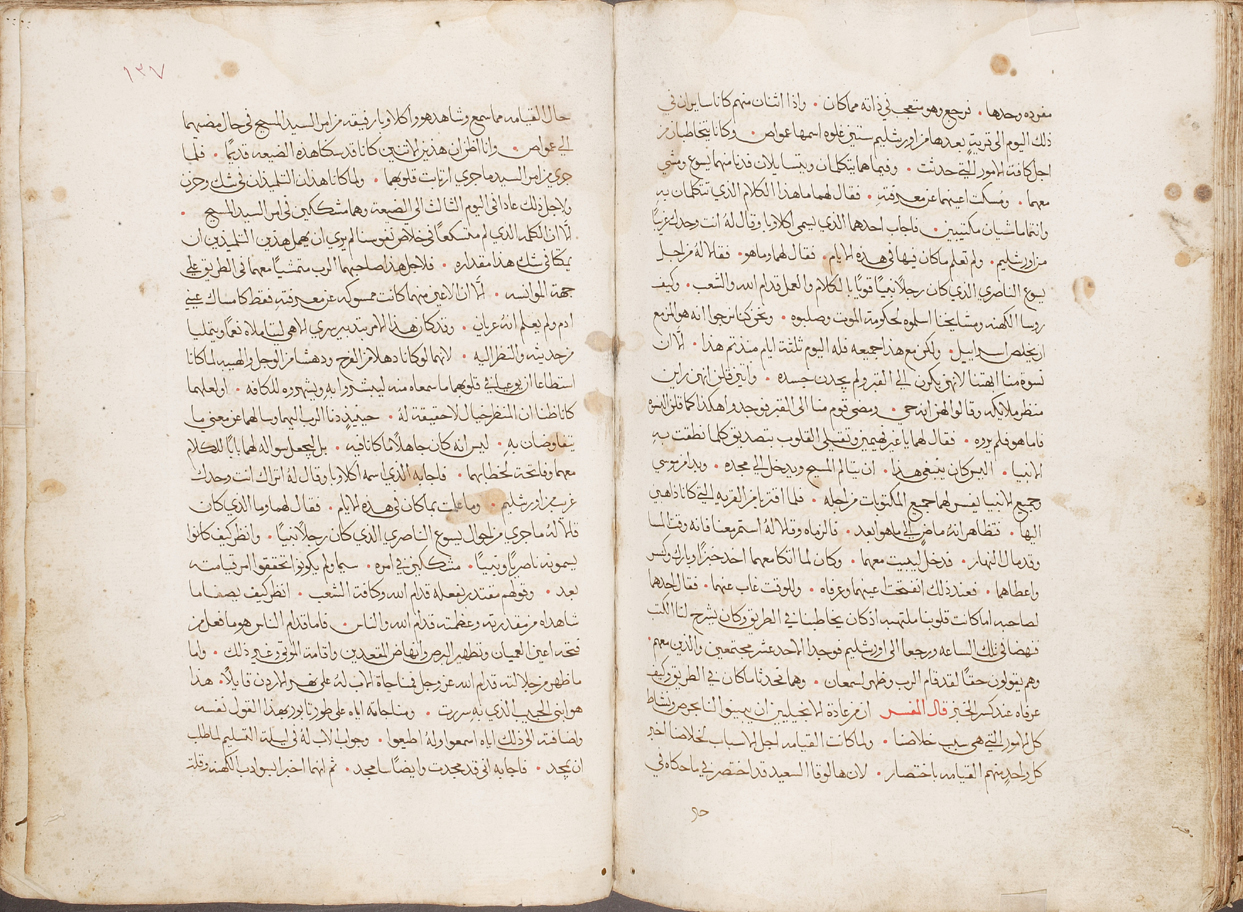 مفرده وحدها • فرجع وهو متعجب في ذاته مما كان • واذا اثنان منهم كانا سايران في
ذلك اليوم الى قرية بعدها من اورشليم ستين غلوه اسمها عمواص • وكانا يتخاطبان من
اجل كافة الامور التي حدثت • وفيما هما يتكلمان ويتسايلان فدنا منهما يسوع ومشى
معهما • ومسكت اعينهما عن معرفته • فقال لهما ما هذا الكلام الذي تتكلمان به
وانتما ماشيان مكتيبين • فاجاب احدهما الذي يسمى اكلاوبا وقال له انت وحدك غريبًا
من اورشليم • ولم تعلم ما كان فيها في هذه الايام • فقال لهما وما هو • فقالا له من اجل
يسوع الناصري الذي كان رجلاً نبيًا قويًا بالكلام والعمل قدام الله والشعب • وكيف
روسا الكهنه ومشايخنا اسلموه لحكومة الموت وصلبوه • ونحن كنا نرجوا انه هو المزمع
ان يخلص اسراييل • ولكن مع هذا جميعه فله اليوم ثلثة ايام منذ تم هذا • الّا ان
نسوه منا ابهتننا لانهن بكرن الى القبر ولم يجدن جسده • واتين قلن انهن راين
منظر ملايكه وقالوا لهن انه حي • ومضى قوم منا الى القبر فوجدوا هكذا كما قلن النسوه
فاما هو فلم يروه • فقال لهما يا غير فهيمين وثقيلي القلوب بتصديق كلما نطقت به
الانبيا • اليس كان ينبغي هذا • ان يتالم المسيح ويدخل الى مجده • وبدا من موسى
وجميع الانبيا يفسر لهما جميع المكتوبات من اجله • فلما اقتربا من القريه التي كانا ذاهبين
اليها • فتظاهر انه ماضٍ الى ما هو ابعد • فالزماه وقالا له استمر معنا فانه وقت المسا
وقد مال النهار • فدخل ليبيت معهما • وكان لما اتكا معهما اخذ خبزًا وبارك وكسر
واعطاهما • فعند ذلك انفتحت اعينهما وعرفاه • وللوقت غاب عنهما • فقال احدهما
لصاحبه اما كانت قلوبنا ملتهبه اذ كان يخاطبنا في الطريق وكان يشرح لنا الكتب
فنهضا في تلك الساعه ورجعا الى اورشليم فوجدا الاحد عشر مجتمعين والذين معهم •
وهم يقولون حقًا لقد قام الرب وظهر لسمعان • وهما تحدثا ما كان في الطريق وكيف
عرفاه عند كسر الخبز قال المفسر ان من عادة الانجيليين ان يبينوا لنا بحرص ونشاط
كل الامور التي هي سبب خلاصنا • ولما كانت القيامه اجل الاسباب لخلاصنا اخبر
كل واحد منهم القيامه باختصار • لان هالوقا السعيد قد اختصر في ما حكاه في
حا
١٣٧
حال القيامه مما سمع وشاهد هو واكلاوبا رفيقه من امر السيد المسيح في حال مضيهما
الى عمواص • وانا اظن ان هذين الاثنين كانا قد سكنا هذه الضيعه قديمًا • فلما
جرى من امر السيد ما جرى ارتابت قلوبهما • ولما كانا هذان التلميذان في شك وحزن
ولاجل ذلك عادا في اليوم الثالث الى الضيعه وهما متشككين في امر السيد المسيح •
الّا ان الكلمه الذي لم متسكعًا في خلاص نفوسنا لم يرى ان يهمل هذين التلميذين ان
يمكثا في شك هذا مقداره • فلاجل هذا صاحبهما الرب متمشيًا معهما في الطريق على
جهة الموانسه • الّا ان الاعين منهما كانت ممسوكه عن معرفته فقط كامساك عيني
ادم ولم يعلم انه عريان • وقد كان هذا الامر بتدبير سري الاهي لينا ملاه نعمًا ويتمليا
من حديثه والنظر اليه • لانهما لو كانا دهلا من الفرح ودهشا من الوجل والهيبه لما كانا
استطاعا ان يوعيا في قلوبهما ما سمعاه منه ليبشروا به ويشهروه للكافه • او لعلهما
كانا ظنا ان المنظر خيال لا حقيقة له • حينيذٍ دنا الرب اليهما وسالهما عن معنى ما
يتفاوضان به • ليس انه كان جاهلاً ما كانا فيه • بل يجعل سواله لهما بابًا للكلام
معهما وفاتحة لخطابهما • فاجابه الذي اسمه اكلاوبا وقال له اتراك انت وحدك
غريب من اورشليم • وما علمت بما كان في هذه الايام • فقال لهما وما الذي كان
قالا له ما جرى من احوال يسوع الناصري الذي كان رجلاً نبيًا • وانظر كيف كانوا
يسمونه ناصريًا ونبيًا • متشككين في امره • سيما ولم يكونوا تحققوا امر قيامته
بعد • وقولهم مقتدر بفعله قدام الله وكافة الشعب • انظر كيف يصفا ما
شاهداه من مقدرته وعظمته قدام الله والناس • فاما قدام الناس هو ما فعل من
فتحه اعين العميان وتطهير البرص وانهاض المقعدين واقامة الموتى وغير ذلك • واما
ما ظهر من جلالته قدام الله عز وجل فمناجاة الاب له على نهر الاردن قايلاً • هذا
هو ابني الحبيب الذي به سررت • ومناجاته اياه على طور تابور بهذا القول نفسه
واضافته الى ذلك اياه اسمعوا وله اطيعوا • وجواب الاب له في ليلة التسليم لما طلب
ان يمجد • فاجابه اني قد مجدت وايضًا سامجد • ثم انهما اخبرا بسو ادب الكهنه وقلة